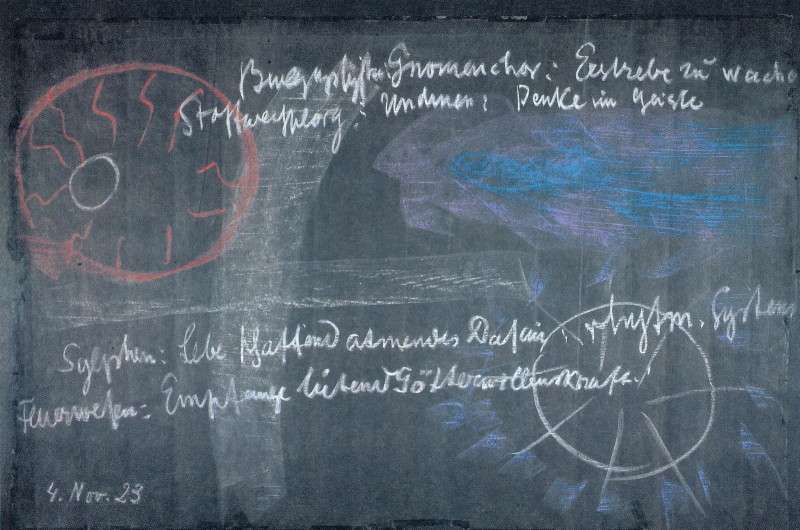 Gnomenchor: Erstrebe zu wache
Stoffwechselorg: Undinen: Denke im Geiste
Sylphen: Lebe schaffend atmendes Dasein. rhytm. System
Feuerwesen: Empfange liebend Götterwillenskraft.
4. Nov. 23